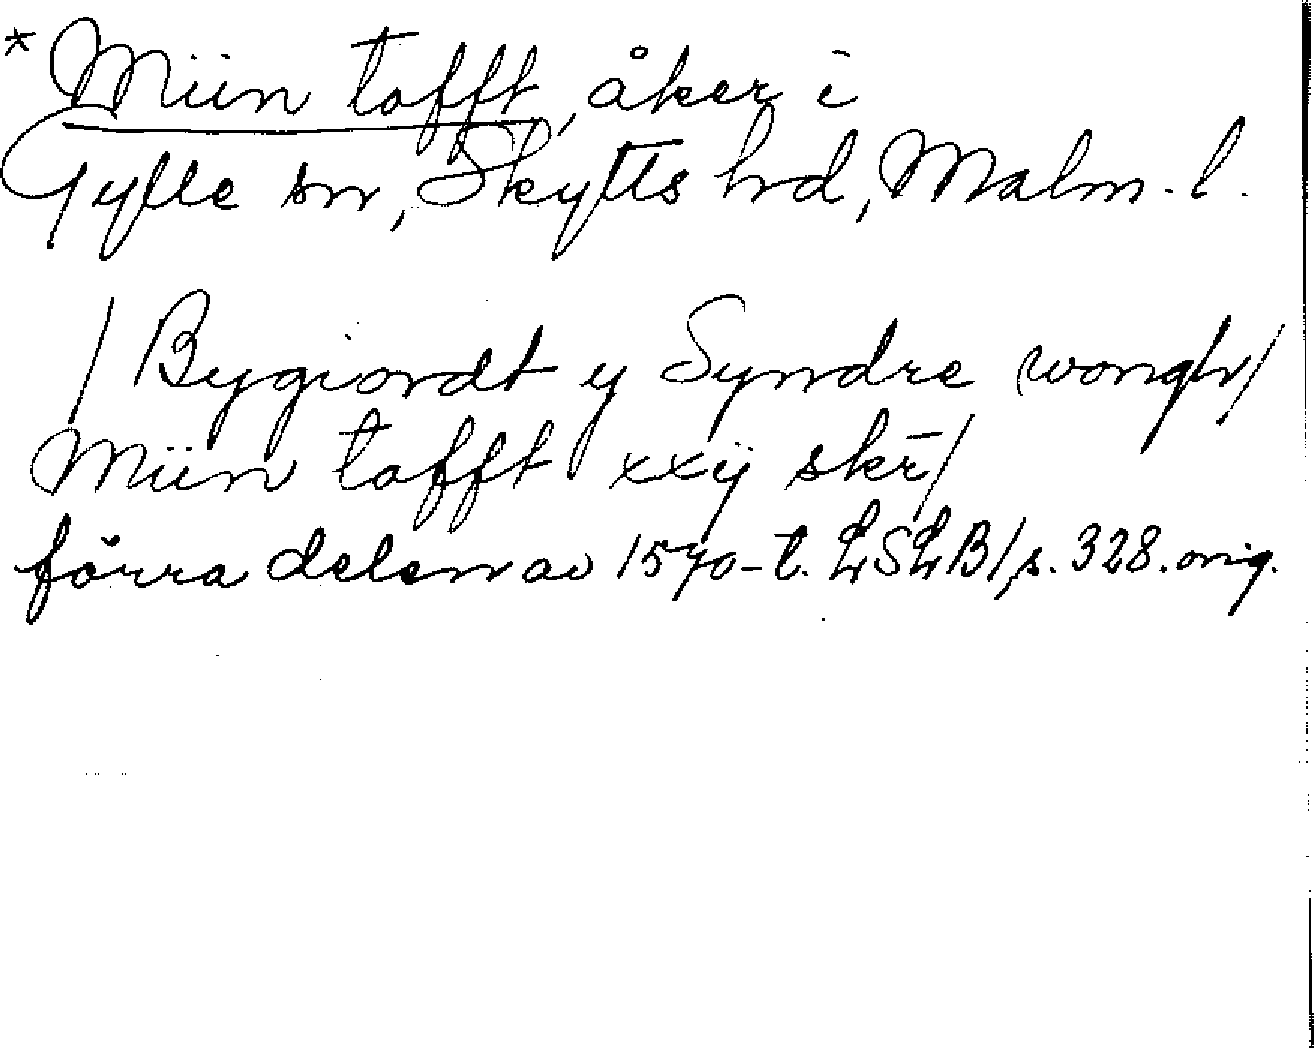 *Miin tofft, åker i
Gylle sn, Skytts hd, Malm. l.
/Bygiordt y Syndre wongh/
Miin tofft xxij skr̄/
förra delen av 1570-t. LSLB/, s. 328. orig.